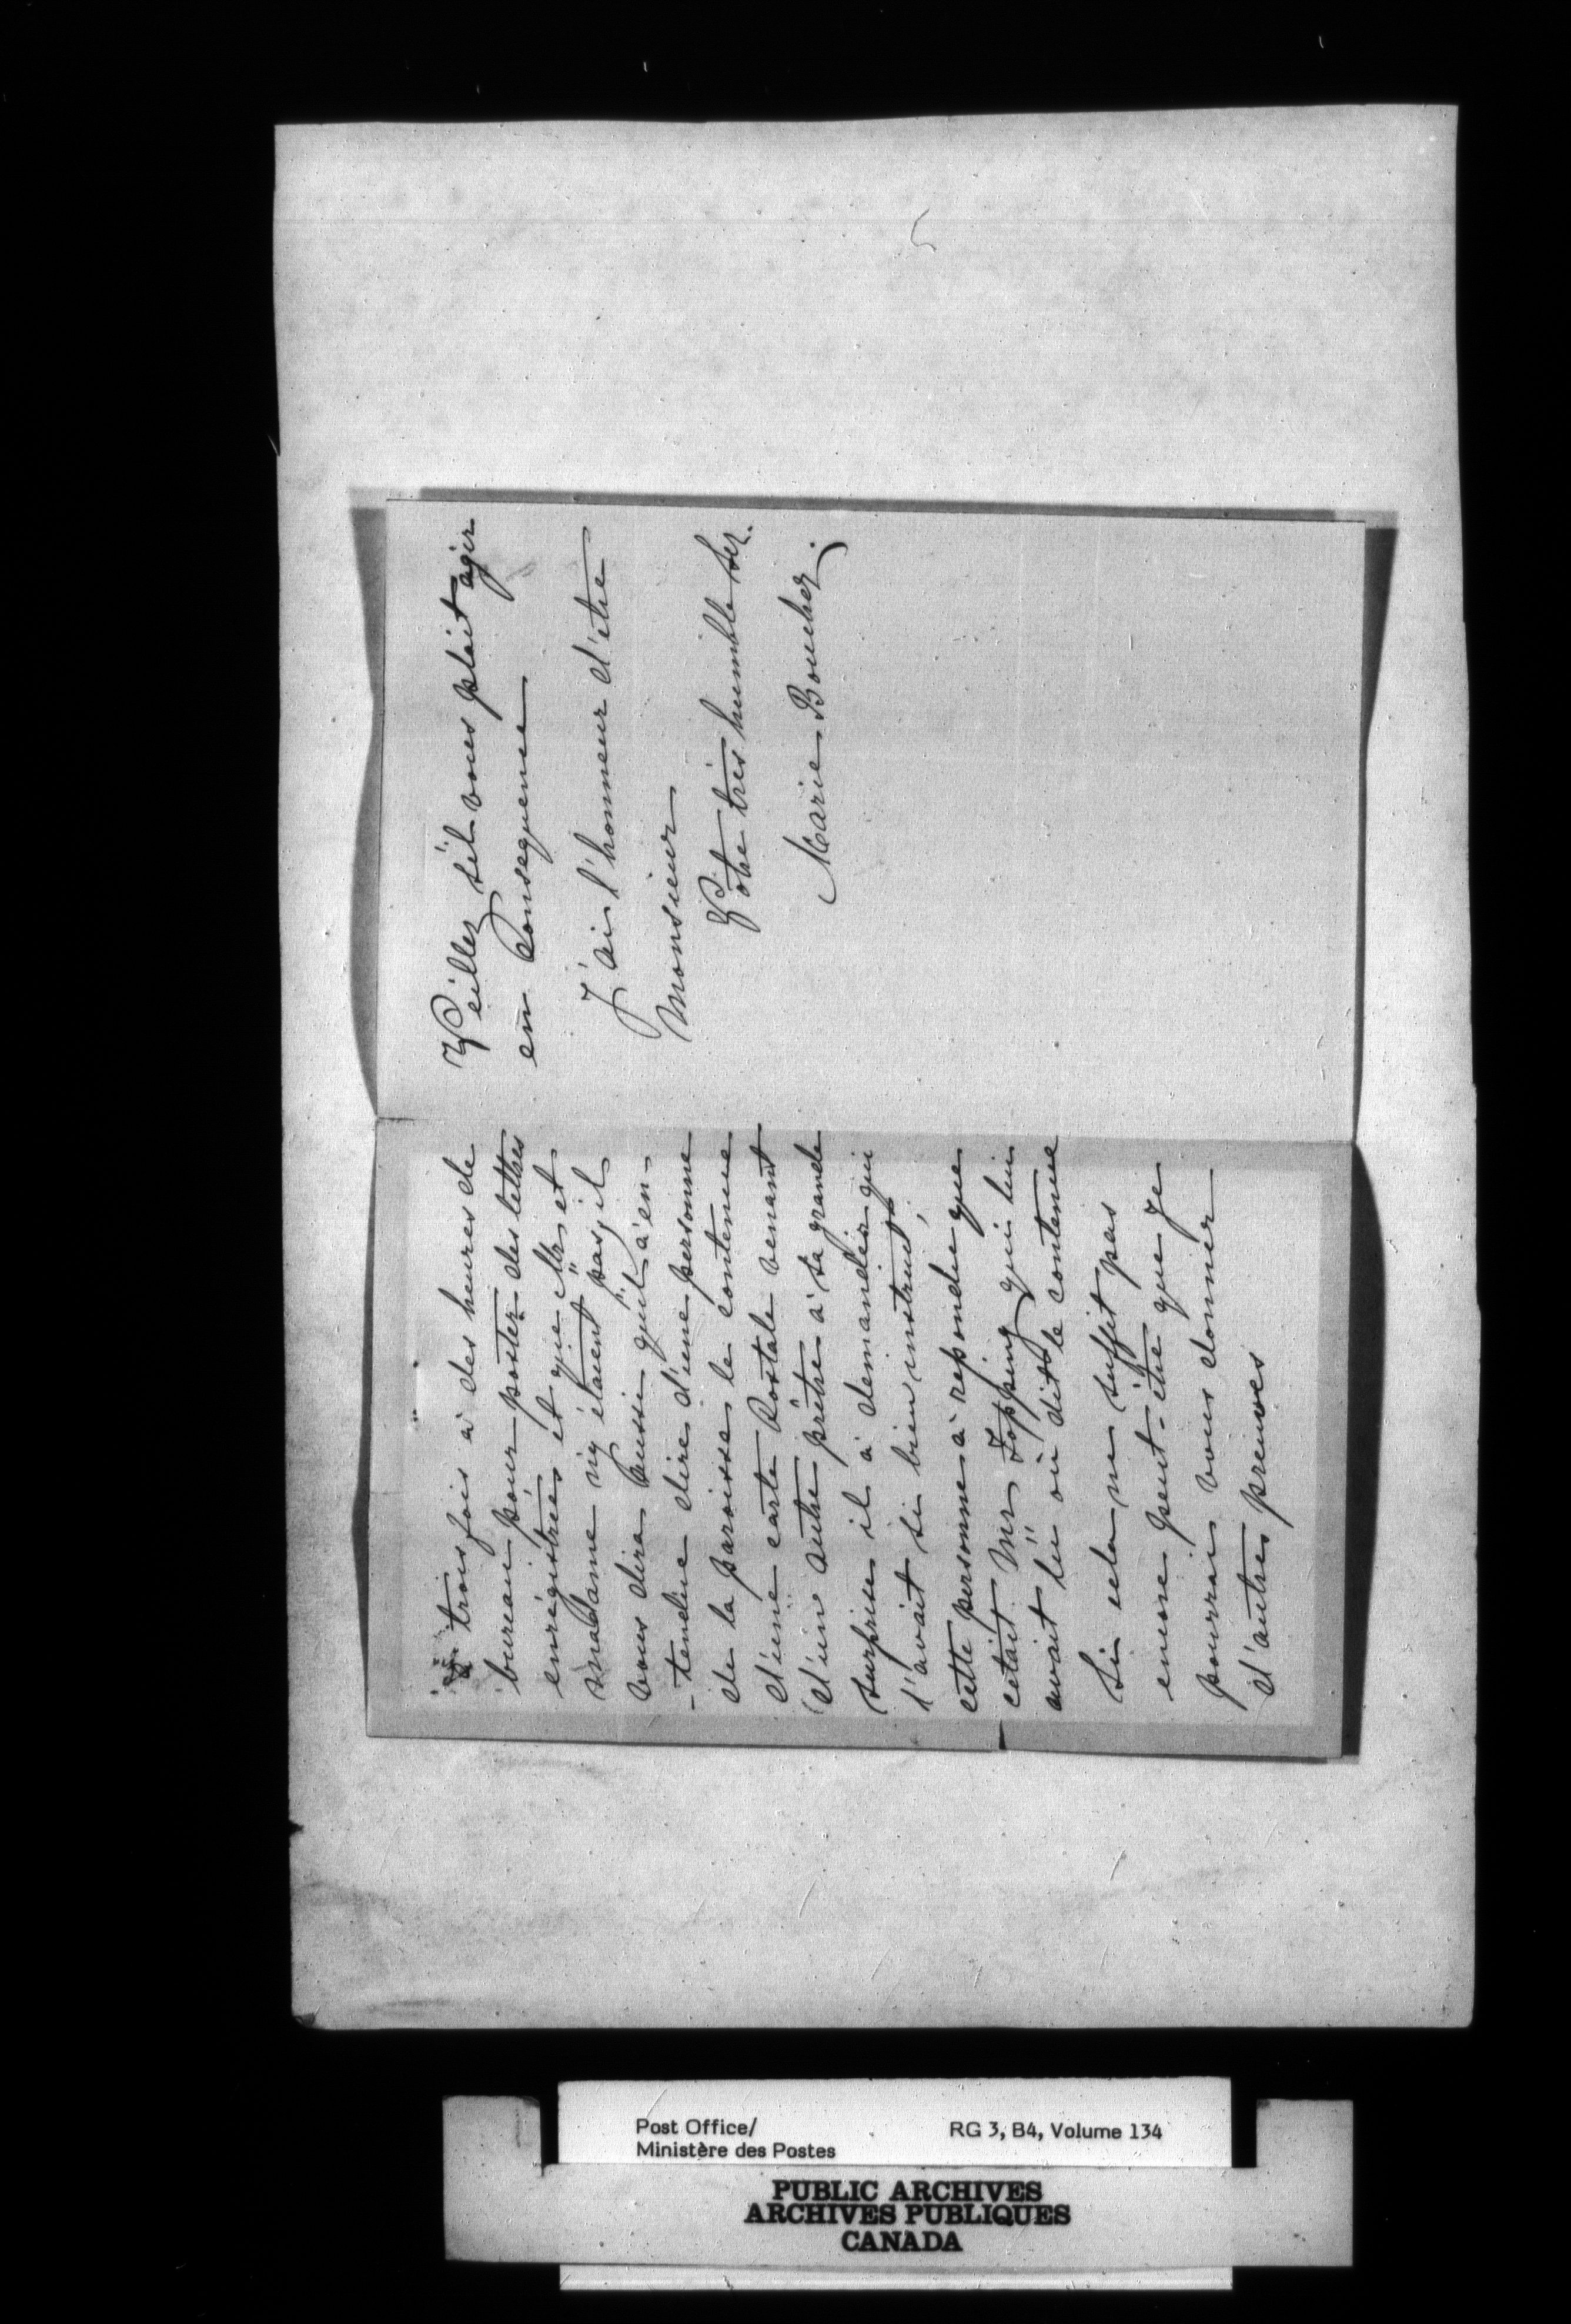 trois fois à des heures de
bureau pour poster des lettres
enrégistrées et que Mr et
madame n'y étaient pas, il
vous dira aussi qu'il à en-
-tendue dire d'une personne
de la paroisse le contenue
d'une carte Postale venant
d'un autre prêtre à sa grande
surprise il à demander qui
l'avait si bien instruit,
cette personne à repondue que
cétait Mr Topping qui lui
avait lu où dit le contenue
Si cela ne suffit pas
encore peut-être que je
pourrai vous donner
d'autres preuves
Veillez s'il vous plait agir
en Consequence
J'ai l'honneur d'etre
Monsieur
Votre très humble Ser.
Marie Boucher.
Post Office/
Ministère des Postes
RG 3, B4, Volume 134
PUBLIC ARCHIVES
ARCHIVES PUBLIQUES
CANADA